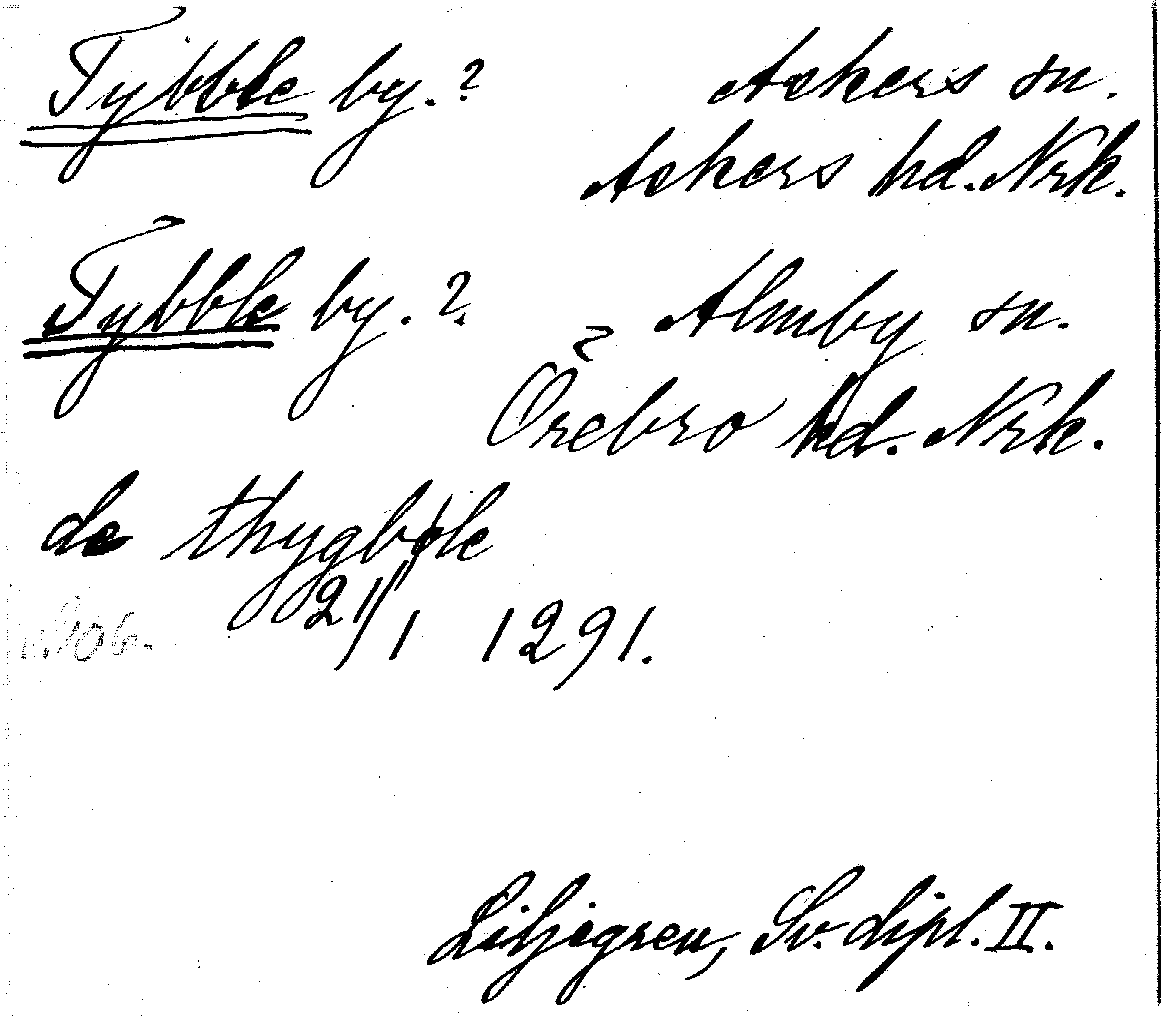 Tybble by.? Askers sn.
Askers hd. Nrk.
Tybble by.? Almby sn.
Örebro hd. Nrk.
de thygbøle
21/1 1291.
Liljegren, Sv. dipl. II.